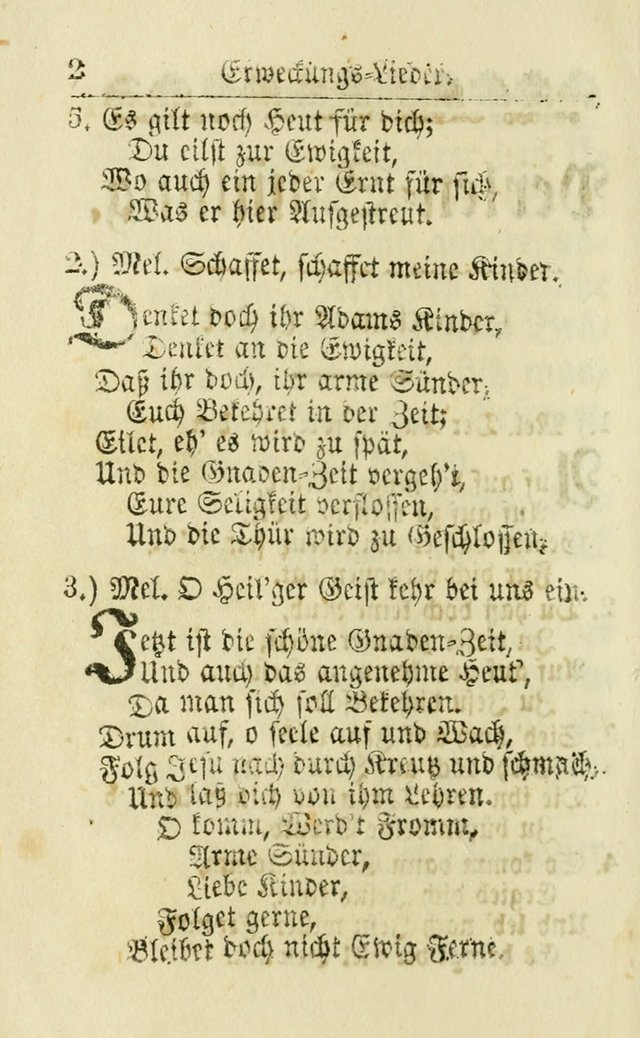 2 Erweckungs-Lieder.
5. Es gilt noch Heut für dich;
Du eilst zur Ewigkeit,
Wo auch ein jeder Ernt für sich,
Was er hier Aufgestreut.
2.) Mel. Schaffet, schaffet meine Kinder.
Denket doch ihr Adams Kinder,
Denket an die Ewigkeit,
Daß ihr doch, ihr arme Sünder,
Euch Bekehret in der Zeit;
Eilet, eh' es wird zu spät,
Und die Gnaden-Zeit vergeh't,
Eure Seligkeit verflossen,
Und die Thür wird zu Geschlossen.
3.) Mel. O Heil'ger Geist kehr bei uns ein.
Jetzt ist die schöne Gnaden-Zeit,
Und auch das angenehme Heut',
Da man sich soll Bekehren.
Drum auf, o seele auf und Wach,
Folg Jesu nach durch Kreutz und schmach,
Und laß dich von ihm Lehren.
O komm, Werd't Fromm,
Arme Sünder,
Liebe Kinder,
Folget gerne,
Bleibet doch nicht Ewig Ferne.